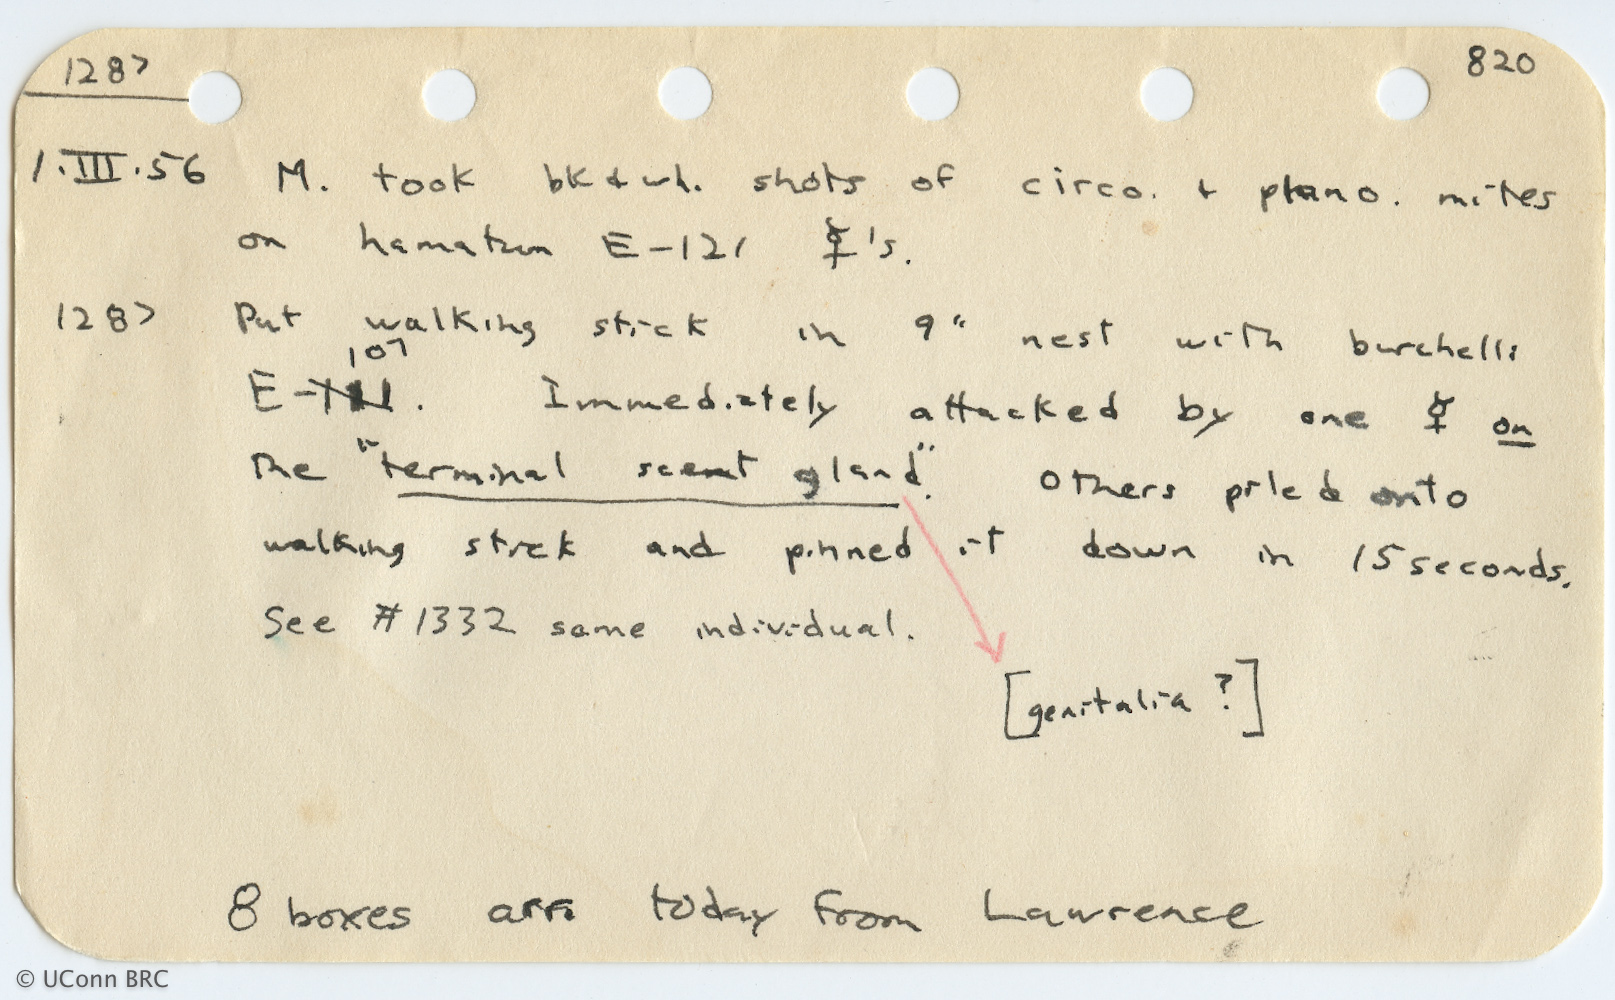 1287 820
1.III.56 M. took bk & wh. shots of circo. + plano. mites
on hamatum E-121 ☿'s.
1287 Put walking stick in 9" nest with burchelli
107
E-. Immediately attacked by one ☿ on
the "terminal scent gland". Others piled onto
walking stick and pinned it down in 15 seconds.
See #1332 same individual.
[genitalia?]
8 boxes arr. today from Lawrence
© UConn BRC